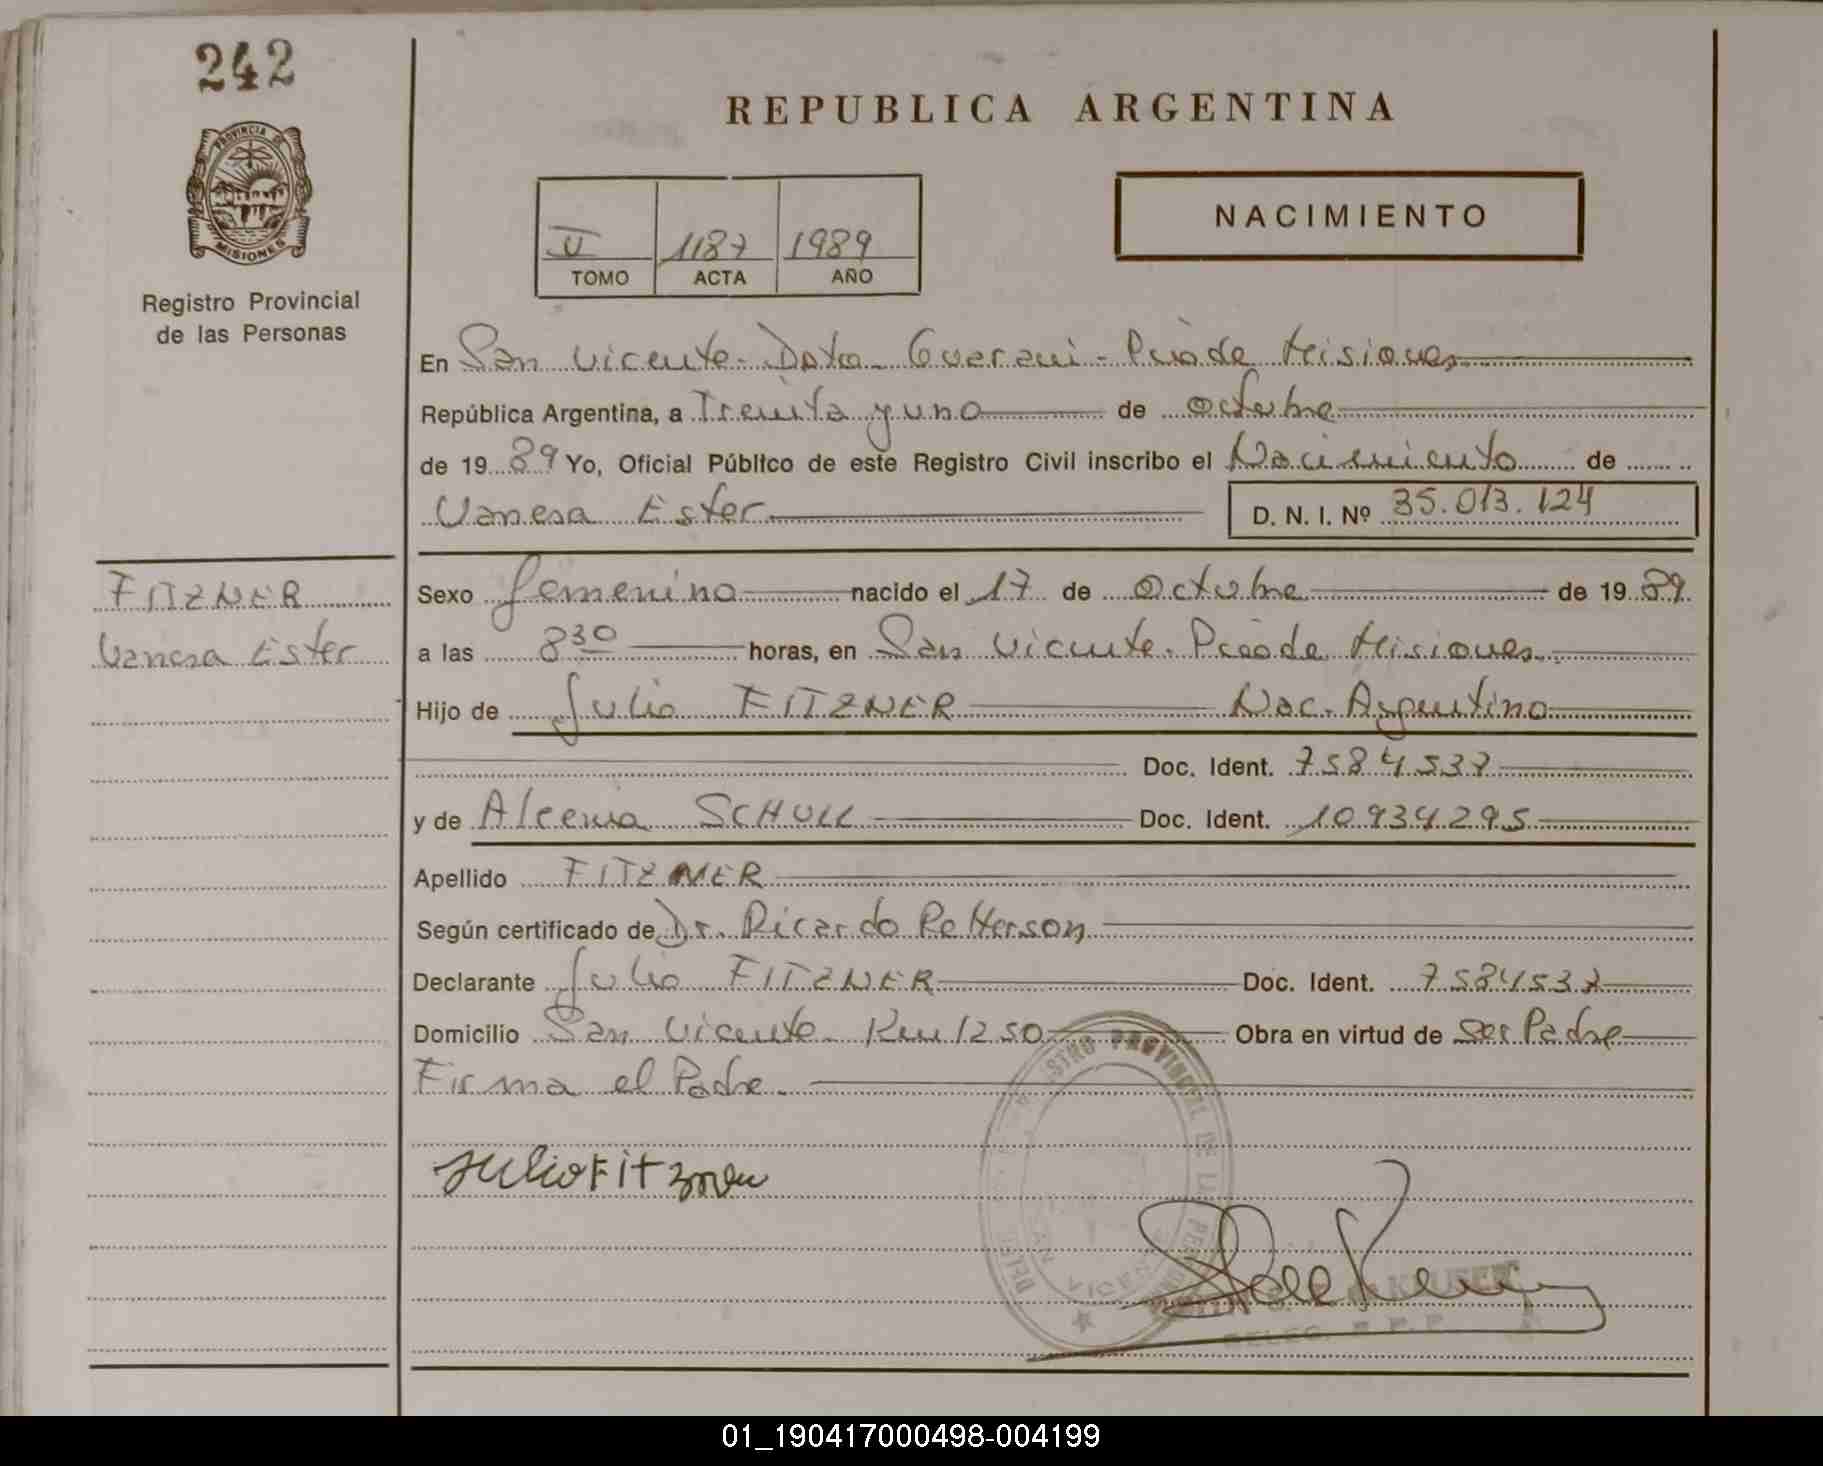 242
PROVINCIA DE
MISIONES
Registro Provincial
de las Personas
REPUBLICA ARGENTINA
NACIMIENTO
V 1187 1989
TOMO ACTA AÑO
En San Vicente - Dpto. Guarani - Pcia de Misiones
República Argentina, a Treinta y uno de octubre
de 19 89 Yo, Oficial Público de este Registro Civil inscribo el Nacimiento de
Vanesa Ester D. N. I. Nº 35.013.124
FITZNER
Vanesa Ester
Sexo femenino nacido el 17 de Octubre de 19 89
a las 8 30 horas, en San Vicente - Pcia de Misiones
Hijo de Julio FITZNER Nac. Argentino
Doc. Ident. 7584537
y de Alcenia SCHULL Doc. Ident. 10934295
Apellido FITZNER
Según certificado de Dr. Ricardo Petterson
Declarante Julio FITZNER Doc. Ident. 7584537
Domicilio San Vicente - Km 1250 Obra en virtud de ser Padre
Firma el Padre.
Julio Fitzner
REGISTRO PROVINCIAL DE LAS PERSONAS
01_190417000498-004199